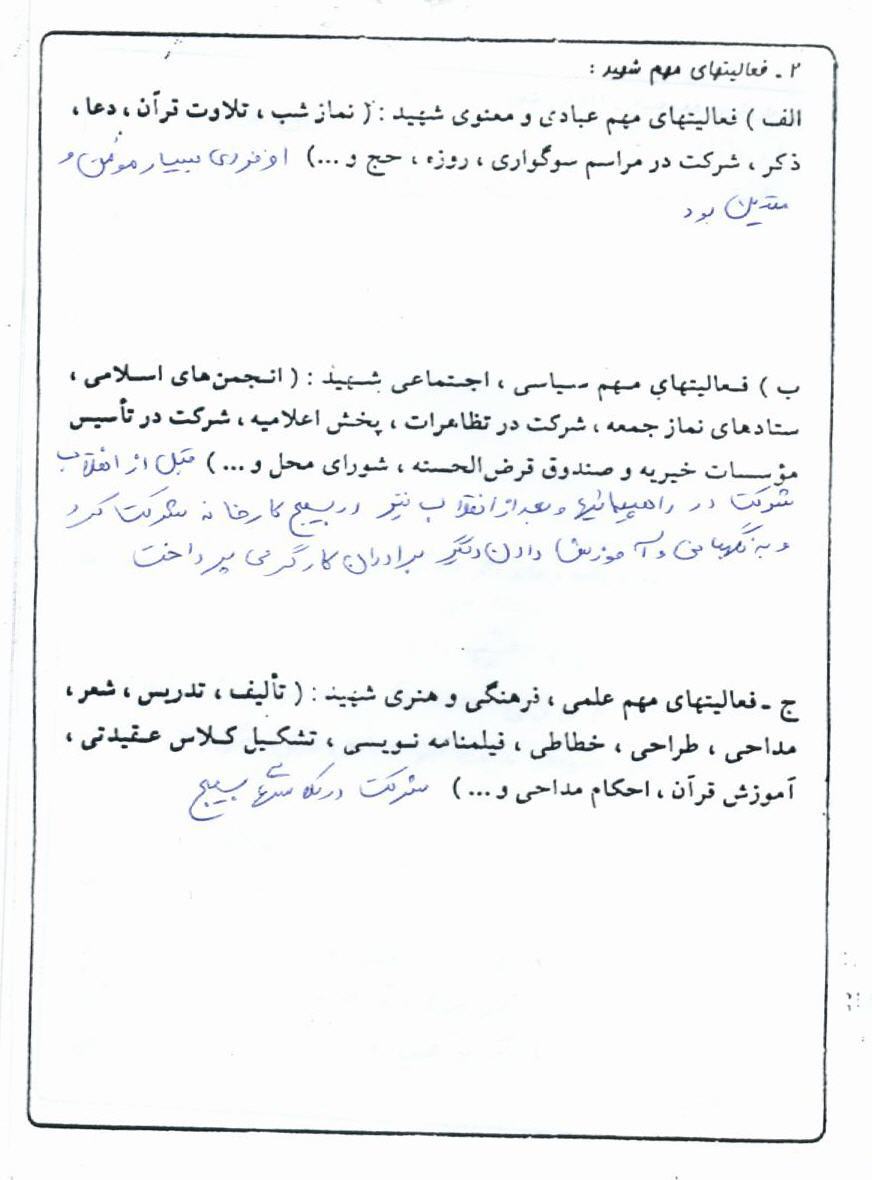 ۲ ـ فعالیتهای مهم شهید :
الف ) فعالیتهای مهم عبادی و معنوی شهید : ( نماز شب ، تلاوت قرآن ، دعا ،
ذکر ، شرکت در مراسم سوگواری ، روزه ، حج و ...) او فردی بسیار مومن و
متدین بود
ب ) فعالیتهای مهم سیاسی ، اجتماعی شهید : ( انجمن‌های اسلامی ،
ستادهای نماز جمعه ، شرکت در تظاهرات ، پخش اعلامیه ، شرکت در تأسیس
مؤسسات خیریه و صندوق قرض‌الحسنه ، شورای محل و ... ) قبل از انقلاب
شرکت در راهپیمائیها و بعد از انقلاب نیز در بسیج کارخانه شرکت کرد
و به نگهبانی و آموزش دادن دیگر برادران کارگر می پرداخت
ج ـ فعالیتهای مهم علمی ، فرهنگی و هنری شهید : ( تألیف ، تدریس ، شعر ،
مداحی ، طراحی ، خطاطی ، فیلمنامه نویسی ، تشکیل کلاس عقیدتی ،
آموزش قرآن ، احکام مداحی و ... ) شرکت در کلاسهای بسیج